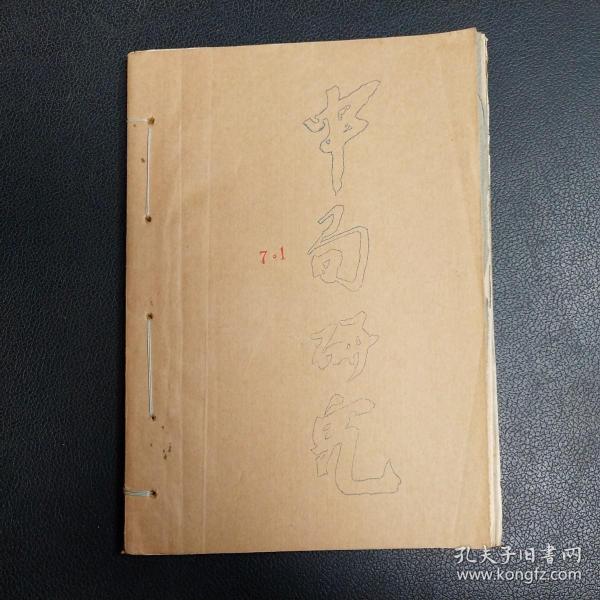 中局研究
7.1
孔夫子旧書网
www.kongfz.com